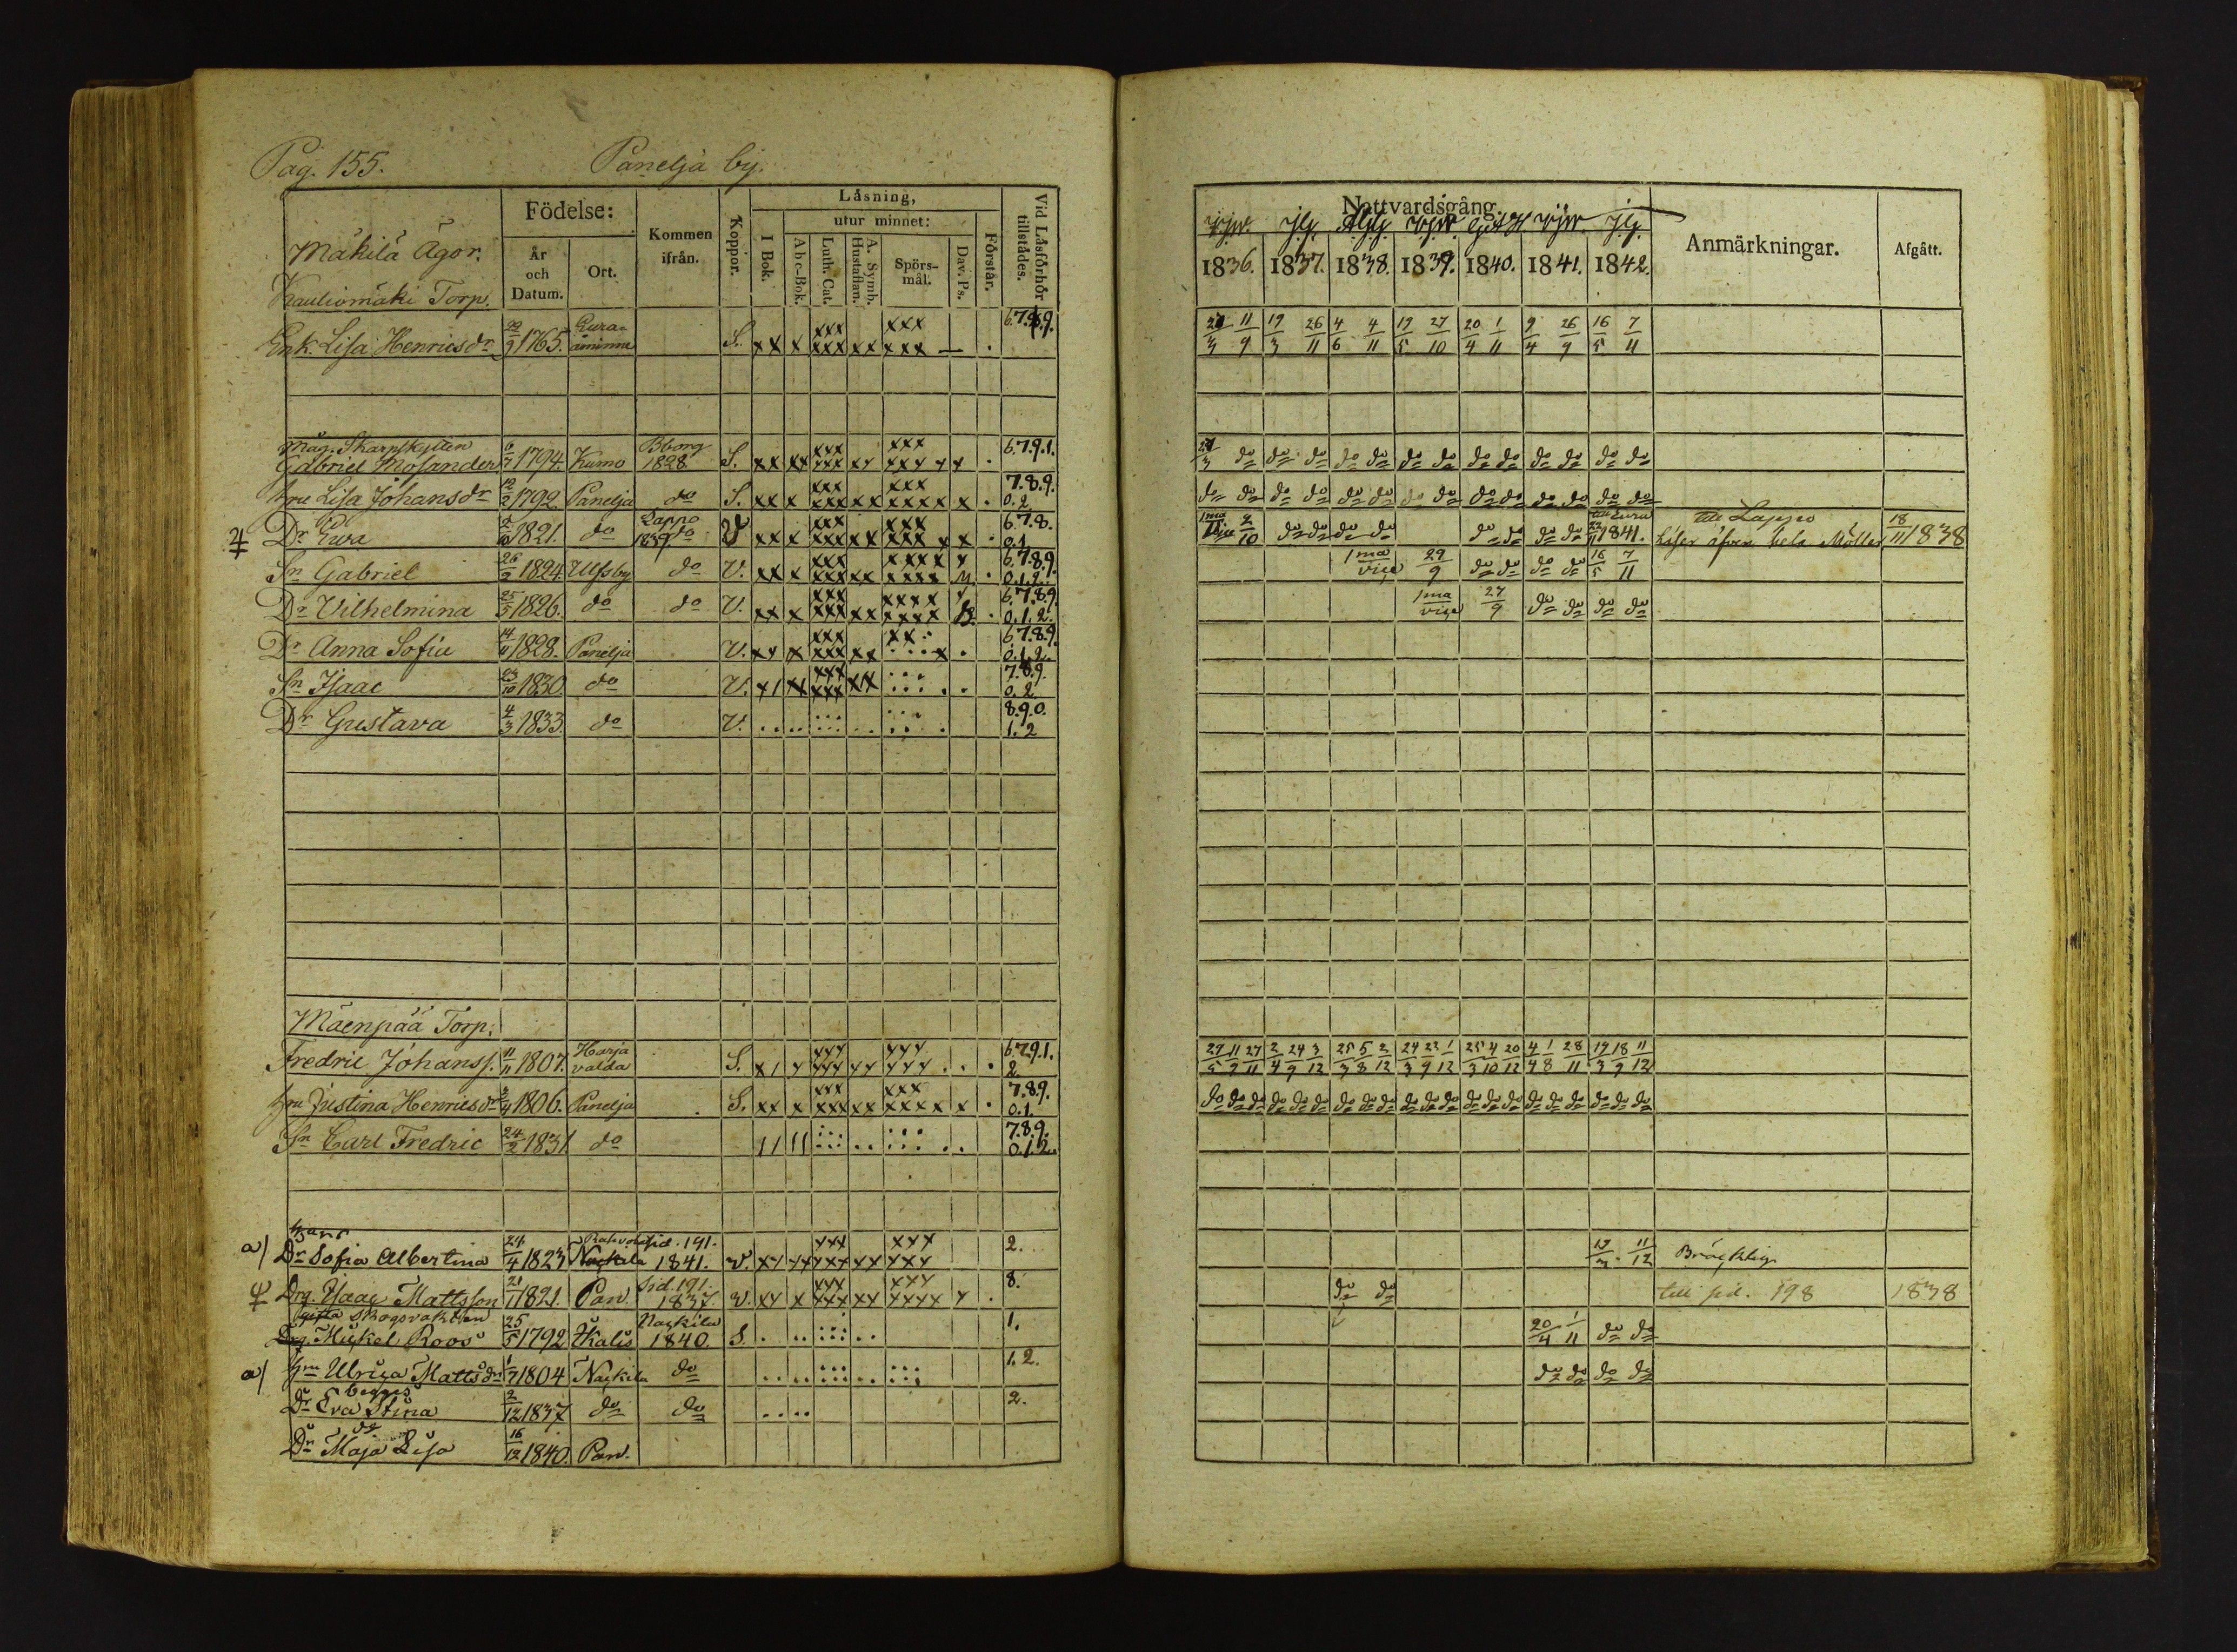 Pag. 155. Panelja by.
Mäkilä Ägor.
Kauliomäki Torp.
Födelse:
År och Datum.
Ort.
Kommen ifrån.
Koppor.
Läsning,
utur minnet:
I Bok.
Abc-Bok.
Luth. Cat.
A. Symb. Hustaflan.
Spörsmål.
Dav. Ps.
Förstår.
Vid Läsförhör tillstådes.
Enk. Lisa Henricsdr 22/9 1765. Eura-åminne S. xx x xxx xxx xx xxx xxx — . 6.7.8.9.
Måg. Skarpskytten
Gabriel Mosander 6/7 1794. Kumo Bborg 1828 S. xx xx xxx xxx xx xxx xxx xx . 6.7.9.1.
hru Lisa Johansdr 12/2 1792. Panelja do S. xx x xxx xxx xx xxx xxxx x . 7.8.9. 0.2
Dr Ewa 1821. do Lappo 1839 do V xx x xxx xxx xx xxx xxxx x . 6.7.8. 0.1
Sn Gabriel 26/2 1824. Ulfsby do V. xx x xxx xxx xx xxxx xxxx . 6.7.8.9. 0.1.2.
Dr Vilhelmina 25/5 1826. do do V. xx x xxx xxx xx xxxx xxxx . 6.7.8.9. 0.1.2.
Dr Anna Sofia 14/11 1828. Panelja V. xx x xxx xxx xx xx . . 6.7.8.9. 0.1.2.
Sn Isaac 23/10 1830 do V. x1 x xxx xxx xx . . 7.8.9. 0.2.
Dr Gustava 4/3 1833. do V. 8.9.0. 1.2
Mäenpää Torp.
Fredric Johanss. 11/11 1807. Harjavalda S. x1 x xxx xxx xx xxx xxx . . 6.7.9.1. 2.
hru Justina Henricsdr 1806. Panelja S. xx x xxx xxx xx xxx xxxx x . 7.8.9. 0.1.
Sn Carl Fredric 24/2 1831 do 11 11 7.8.9. 0.1.2.
hans
a) Dr Sofia Albertina 24/4 1823 Nackila sid. 191. 1841. v. xx xx xxx xxx xx xxx xxx 2.
Drg. Isaac Mattsson 21/11 1821. Pan. Sid. 191. 1837. v. xx x xxx xxx xx xxx xxxx x . 8.
gifta Skogsvaktaren
Drg. Mickel Roos 25/5 1792 Kalis Nackila 1840. S. 1.
a) hru Ulrica Mattsdr 1/7 1804 Nackila do 1.2.
begges
Dr Eva Stina 2/12 1837 do do 2.
do
Dr Maja Lisa 16/12 1840. Pan.
Nattvardsgång.
1836. 1837. 1838. 1839. 1840. 1841. 1842.
Anmärkningar.
Afgått.
11/9 19/3 26/11 4/6 4/11 19/5 27/10 20/4 1/11 9/4 26/9 16/5 7/11
do do do do do do do do do do do do do
do do do do do do do do do do do do do do
1ma 2/10 do do do do do do do do till Eura 1841. till Lappo
Läser äfven hela Möller 18/11 1838
1ma vice 29/9 do do do do 16/5 7/11
1ma vice 27/9 do do do do
29/5 11/9 27/11 2/4 24/9 3/12 25/3 5/8 2/12 24/3 22/9 1/12 25/3 4/10 20/12 4/4 1/8 28/11 19/3 18/9 11/12
do do do do do do do do do do do do do do do do do do do do do
19/3 . 11/12 Bräcklig
do do till sid. 198 1838
20/4 1/11 do do
do do do do